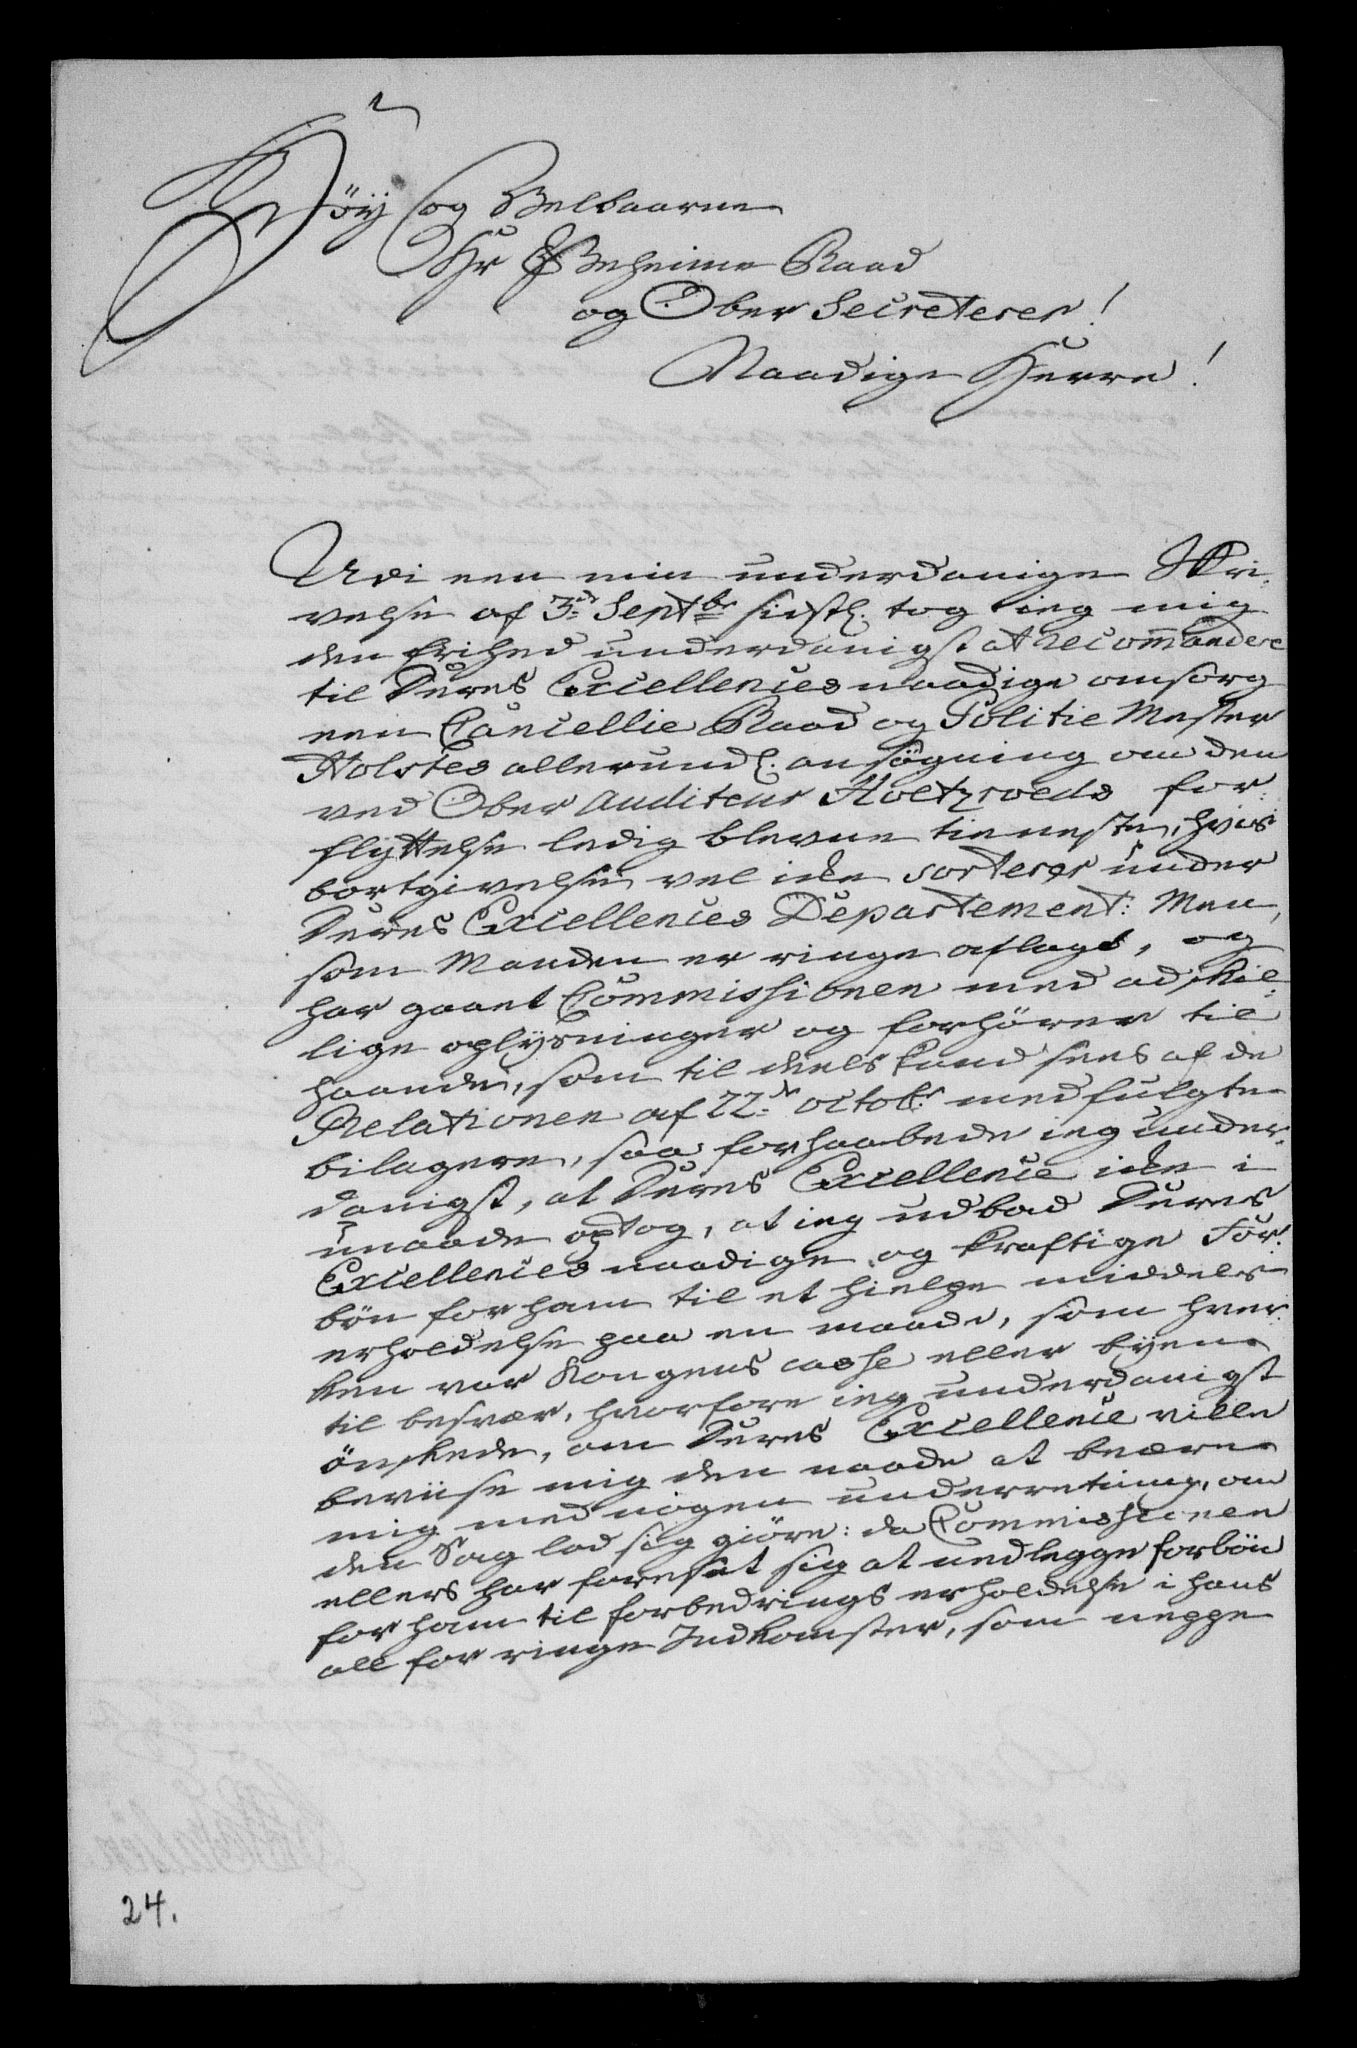 Höÿ og Velbaarne
Hr Geheime Raad
og Ober Secreterer!
Naadige Herre!
Udi een min underdanige Skri-
velse af 3de Septbr sidstl. tog ieg mig
den frihed underdanigst at recommandere
til Deres Excellences naadige omsorg
een Cancellie Raad og Politie Mester
Holstes allerundl. ansögning om den
ved Ober Auditeur Holtzroeds for-
flyttelse ledig blevne tieneste, hvis
bortgivelse vel icke sorterer under
Deres Excellences Departement: Men,
som Manden er ringe aflagt, og
har gaaet Commissionen med adskil-
lige oplysninger og forhörer til
haande, som til deels kand sees af de
Relationen af 22de octobr medfulgte
bilagere, saa forhaabede ieg under-
danigst, at Deres Excellence icke i
unaade optog, at ieg udbad Deres
Excellences naadige og kraftige For-
bön for ham til et hielpe middels
erholdelse paa en maade, som hver-
ken var Kongens casse eller byen
til besvær, hvorfore ieg underdanigst
önskede, om Deres Excellence ville
beviise mig den naade at beære
mig med nogen underretning, om
den Sag lod sig giöre: da Commissionen
ellers har foresat sig at nedlegge forbön
for ham til forbedrings erholdelse i hans
all for ringe Indkomster, som neppe
24.